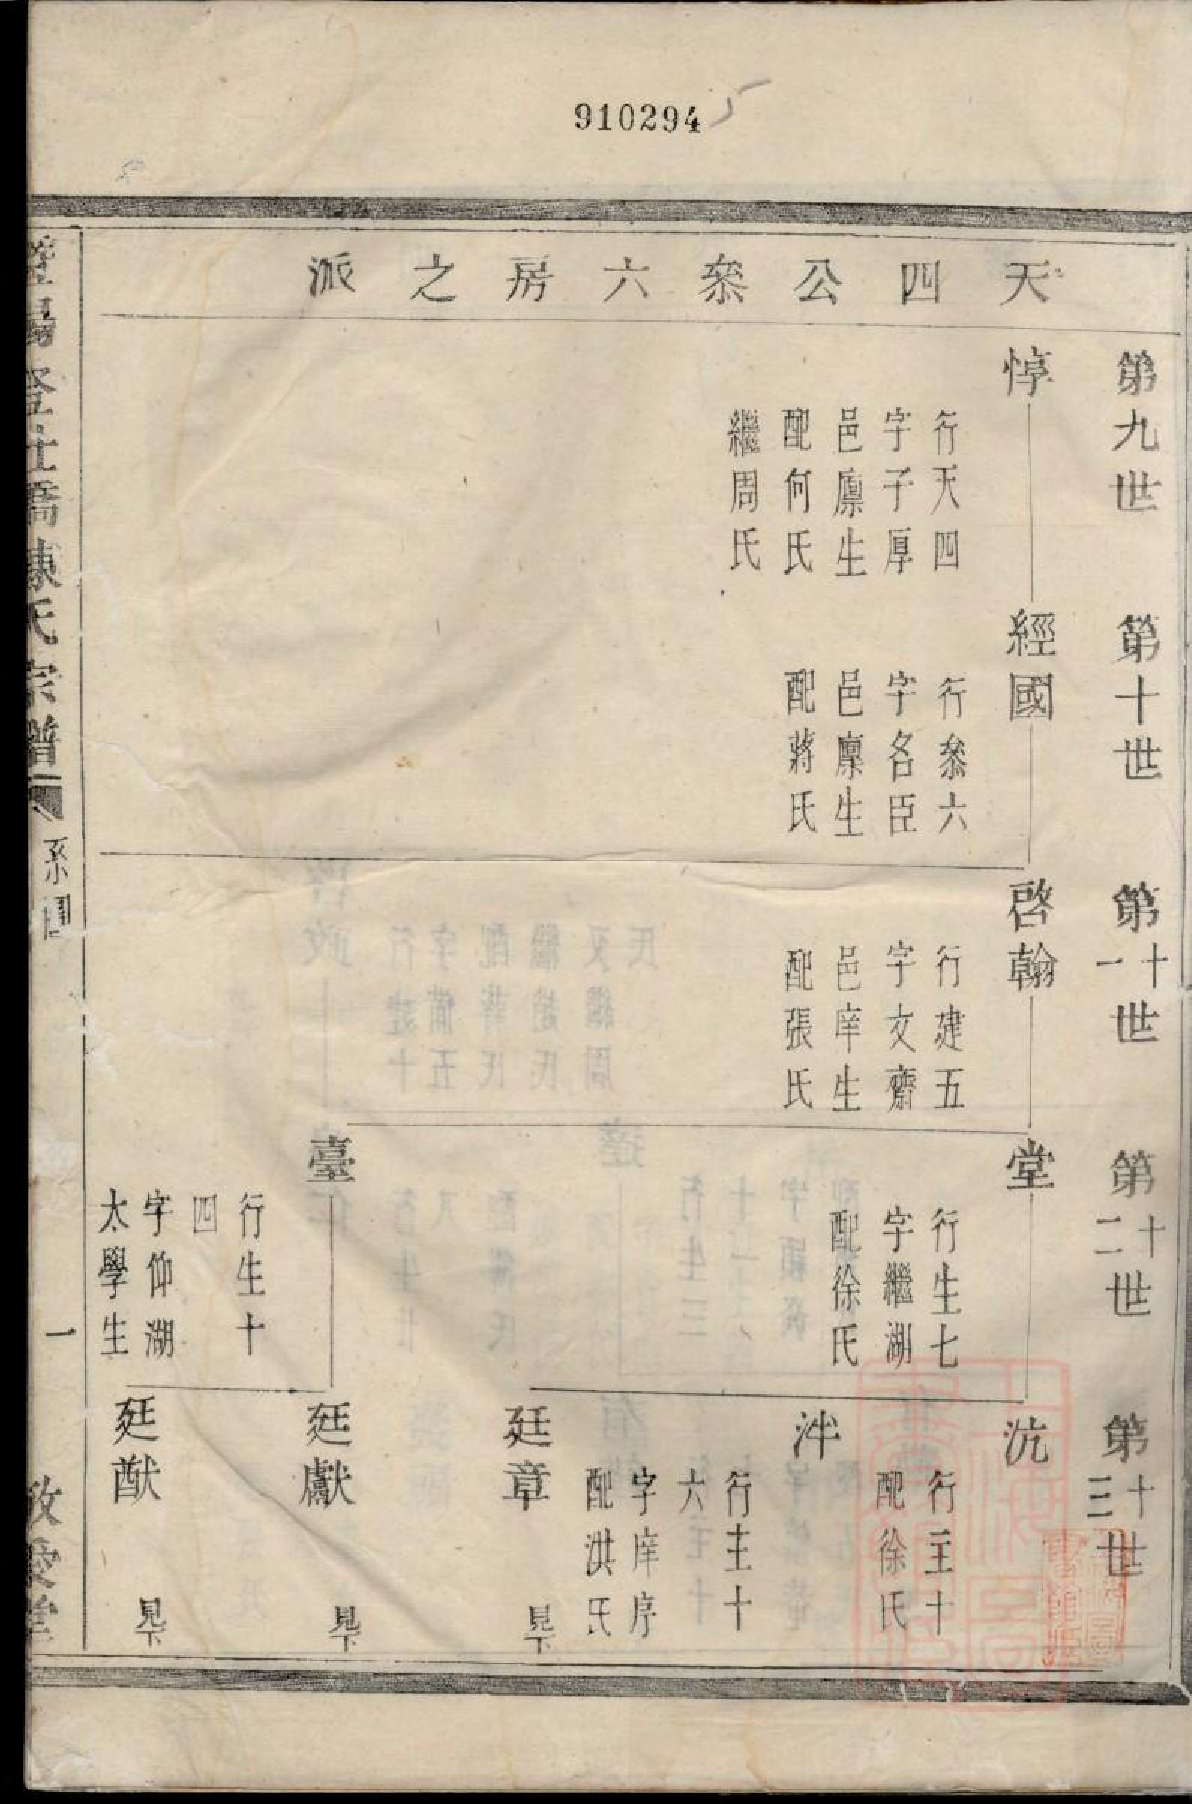 910294
5
天四公叅六房之派
第九世
惇
行天四
字子厚
邑廪生
配何氏
繼周氏
第十世
經國
行叅六
字名臣
邑廪生
配蔣氏
第十一世
啓翰
行建五
字文齋
邑庠生
配張氏
第十二世
堂
行生七
字繼湖
配徐氏
臺
行生十
四
字仰湖
太學生
第十三世
沆
行主十
配徐氏
泮
行主十
六
字庠序
配洪氏
廷章
見下
廷獻
見下
廷猷
見下
陳氏宗譜
系圖
一
敬愛堂